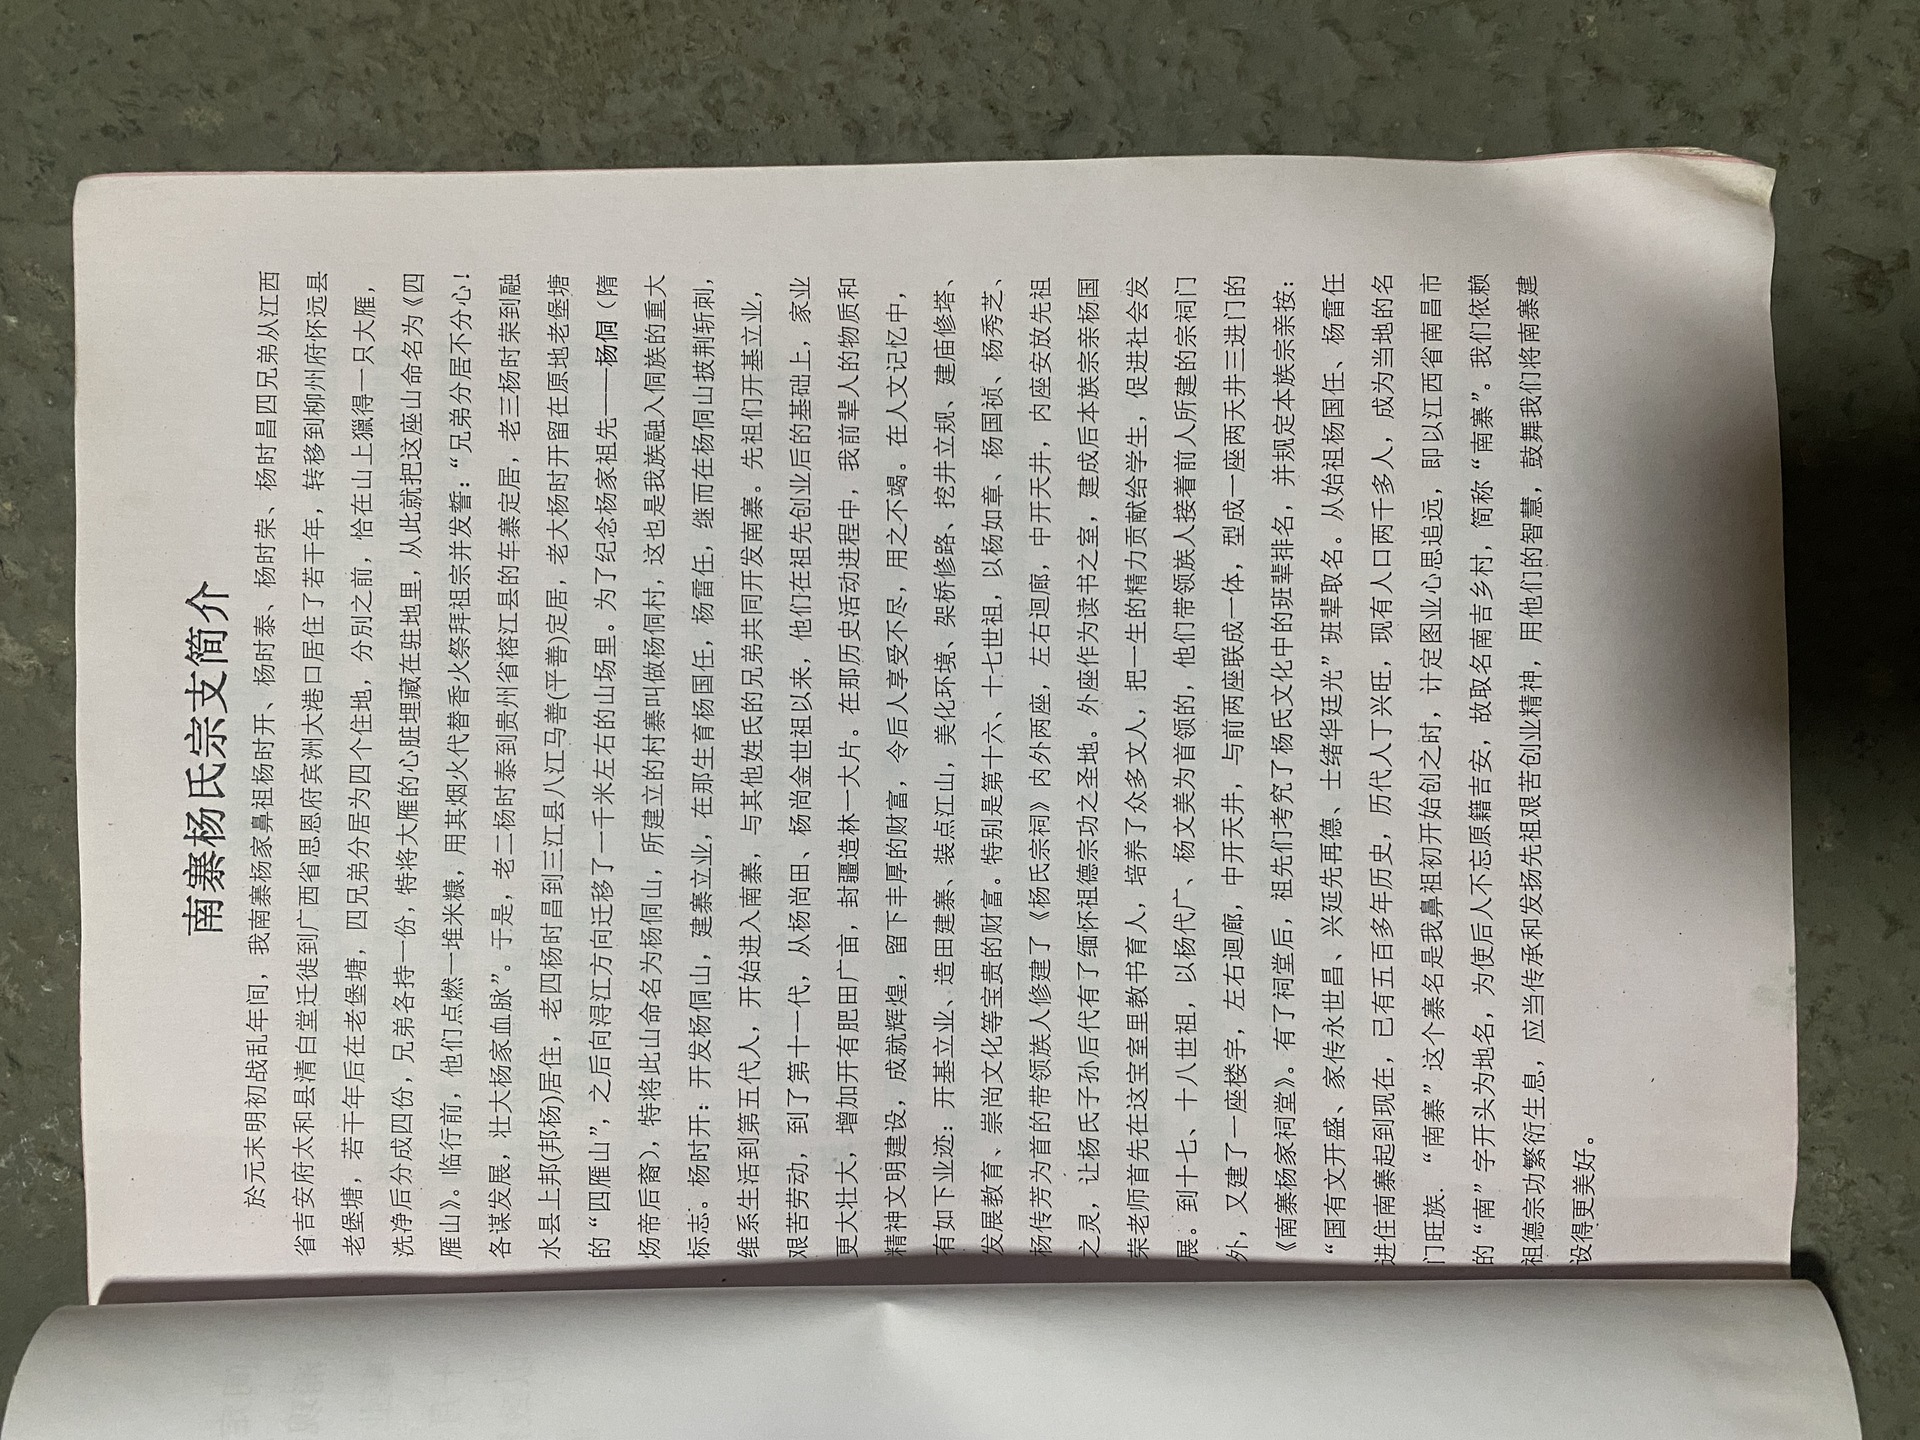 南寨杨氏宗支简介
於元末明初战乱年间，我南寨杨家鼻祖杨时开、杨时泰、杨时荣、杨时昌四兄弟从江西
省吉安府太和县清白堂迁徙到广西省思恩府宾洲大港口居住了若干年，转移到柳州府怀远县
老堡塘，若干年后在老堡塘，四兄弟分居为四个住地，分别之前，恰在山上獵得一只大雁，
洗净后分成四份，兄弟各持一份，特将大雁的心脏埋藏在驻地里，从此就把这座山命名为《四
雁山》。临行前，他们点燃一堆米糠，用其烟火代替香火祭拜祖宗并发誓：“兄弟分居不分心！
各谋发展，壮大杨家血脉”。于是，老二杨时泰到贵州省榕江县的车寨定居，老三杨时荣到融
水县上邦(邦杨)居住，老四杨时昌到三江县八江马善(平善)定居，老大杨时开留在原地老堡塘
的“四雁山”，之后向浔江方向迁移了一千米左右的山场里。为了纪念杨家祖先——杨侗（隋
炀帝后裔），特将此山命名为杨侗山，所建立的村寨叫做杨侗村，这也是我族融入侗族的重大
标志。杨时开：开发杨侗山，建寨立业，在那生育杨国任，杨雷任，继而在杨侗山披荆斩刺，
维系生活到第五代人，开始进入南寨，与其他姓氏的兄弟共同开发南寨。先祖们开基立业，
艰苦劳动，到了第十一代，从杨尚田、杨尚金世祖以来，他们在祖先创业后的基础上，家业
更大壮大，增加开有肥田广亩，封疆造林一大片。在那历史活动进程中，我前辈人的物质和
精神文明建设，成就辉煌，留下丰厚的财富，令后人享受不尽，用之不竭。在人文记忆中，
有如下业迹：开基立业、造田建寨、装点江山，美化环境、架桥修路、挖井立规、建庙修塔、
发展教育、崇尚文化等宝贵的财富。特别是第十六、十七世祖，以杨如章、杨国祯、杨秀芝、
杨传芳为首的带领族人修建了《杨氏宗祠》内外两座，左右迴廊，中开天井，内座安放先祖
之灵，让杨氏子孙后代有了缅怀祖德宗功之圣地。外座作为读书之室，建成后本族宗亲杨国
荣老师首先在这宝室里教书育人，培养了众多文人，把一生的精力贡献给学生，促进社会发
展。到十七、十八世祖，以杨代广、杨文美为首领的，他们带领族人接着前人所建的宗祠门
外，又建了一座楼宇，左右迴廊，中开天井，与前两座联成一体，型成一座两天井三进门的
《南寨杨家祠堂》。有了祠堂后，祖先们考究了杨氏文化中的班辈排名，并规定本族宗亲按：
“国有文开盛、家传永世昌、兴延先再德、士绪华廷光”班辈取名。从始祖杨国任、杨雷任
进住南寨起到现在，已有五百多年历史，历代人丁兴旺，现有人口两千多人，成为当地的名
门旺族．“南寨”这个寨名是我鼻祖初开始创之时，计定图业心思追远，即以江西省南昌市
的“南”字开头为地名，为使后人不忘原籍吉安，故取名南吉乡村，简称“南寨”。我们依赖
祖德宗功繁衍生息，应当传承和发扬先祖艰苦创业精神，用他们的智慧，鼓舞我们将南寨建
设得更美好。